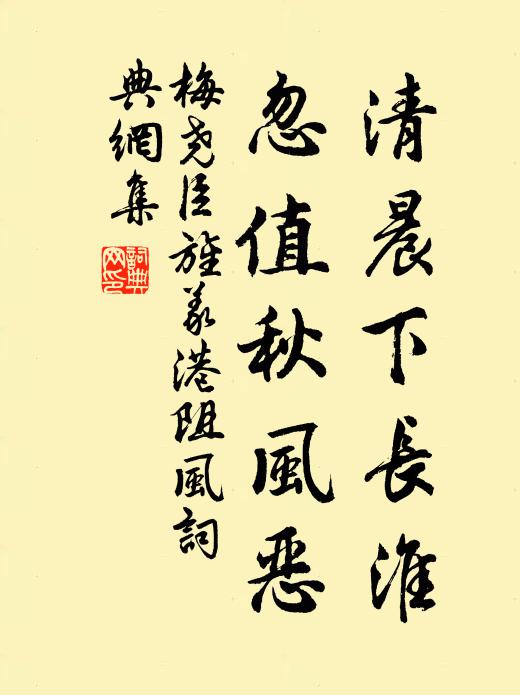 清晨下長淮
忽值秋風惡
梅堯臣旌義港阻風詞
典網集
詞典
网印